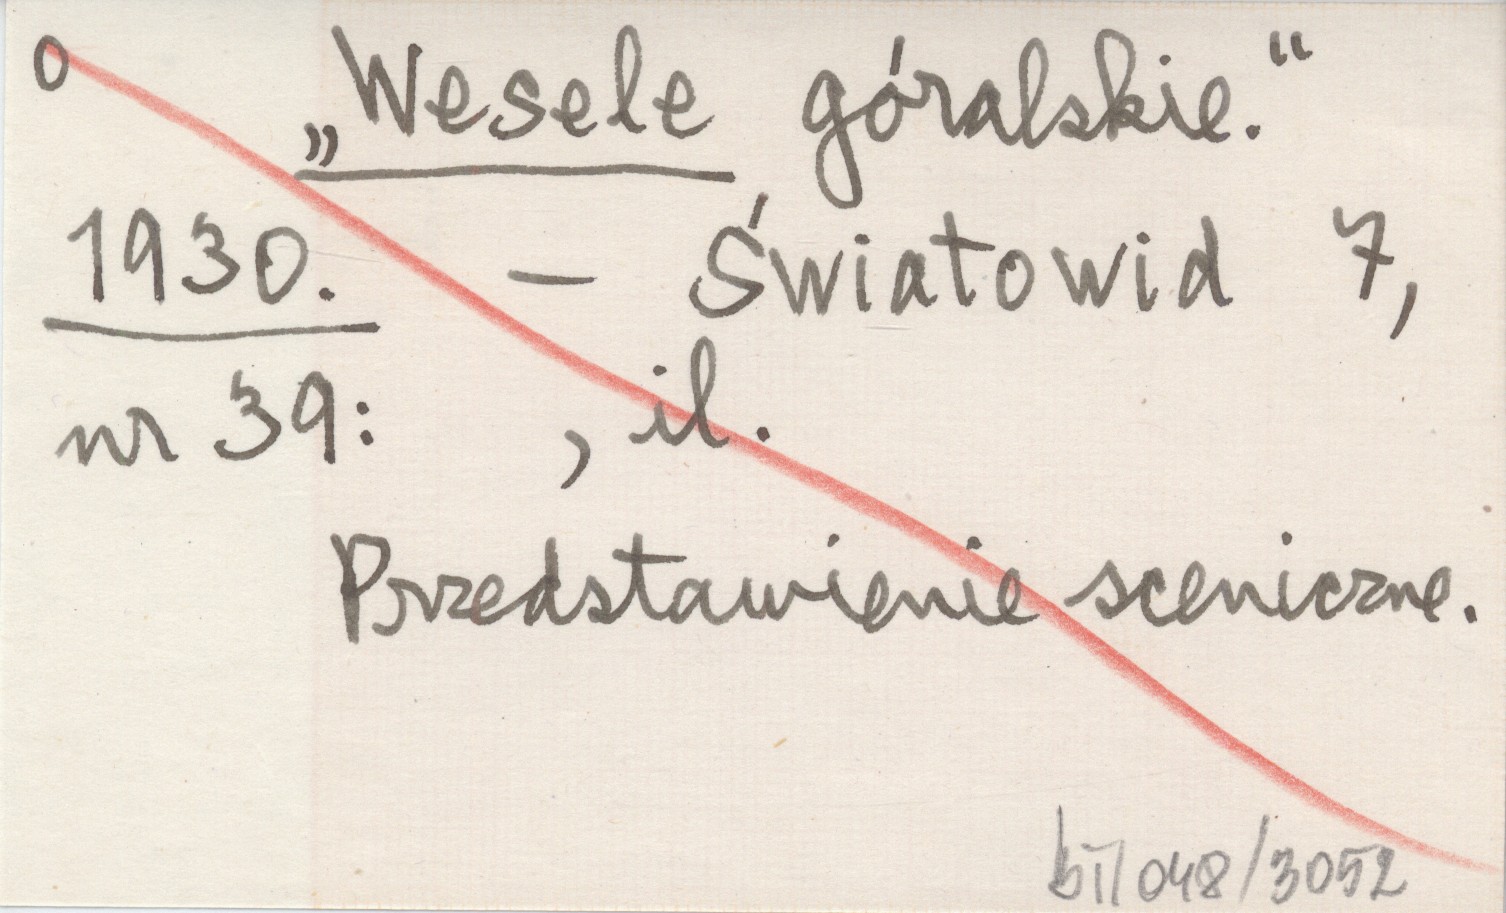 0 „Wesele góralskie.“
1930. – Światowid 7,
nr 39: , il.
Przedstawienie sceniczne.
bī/048/3052